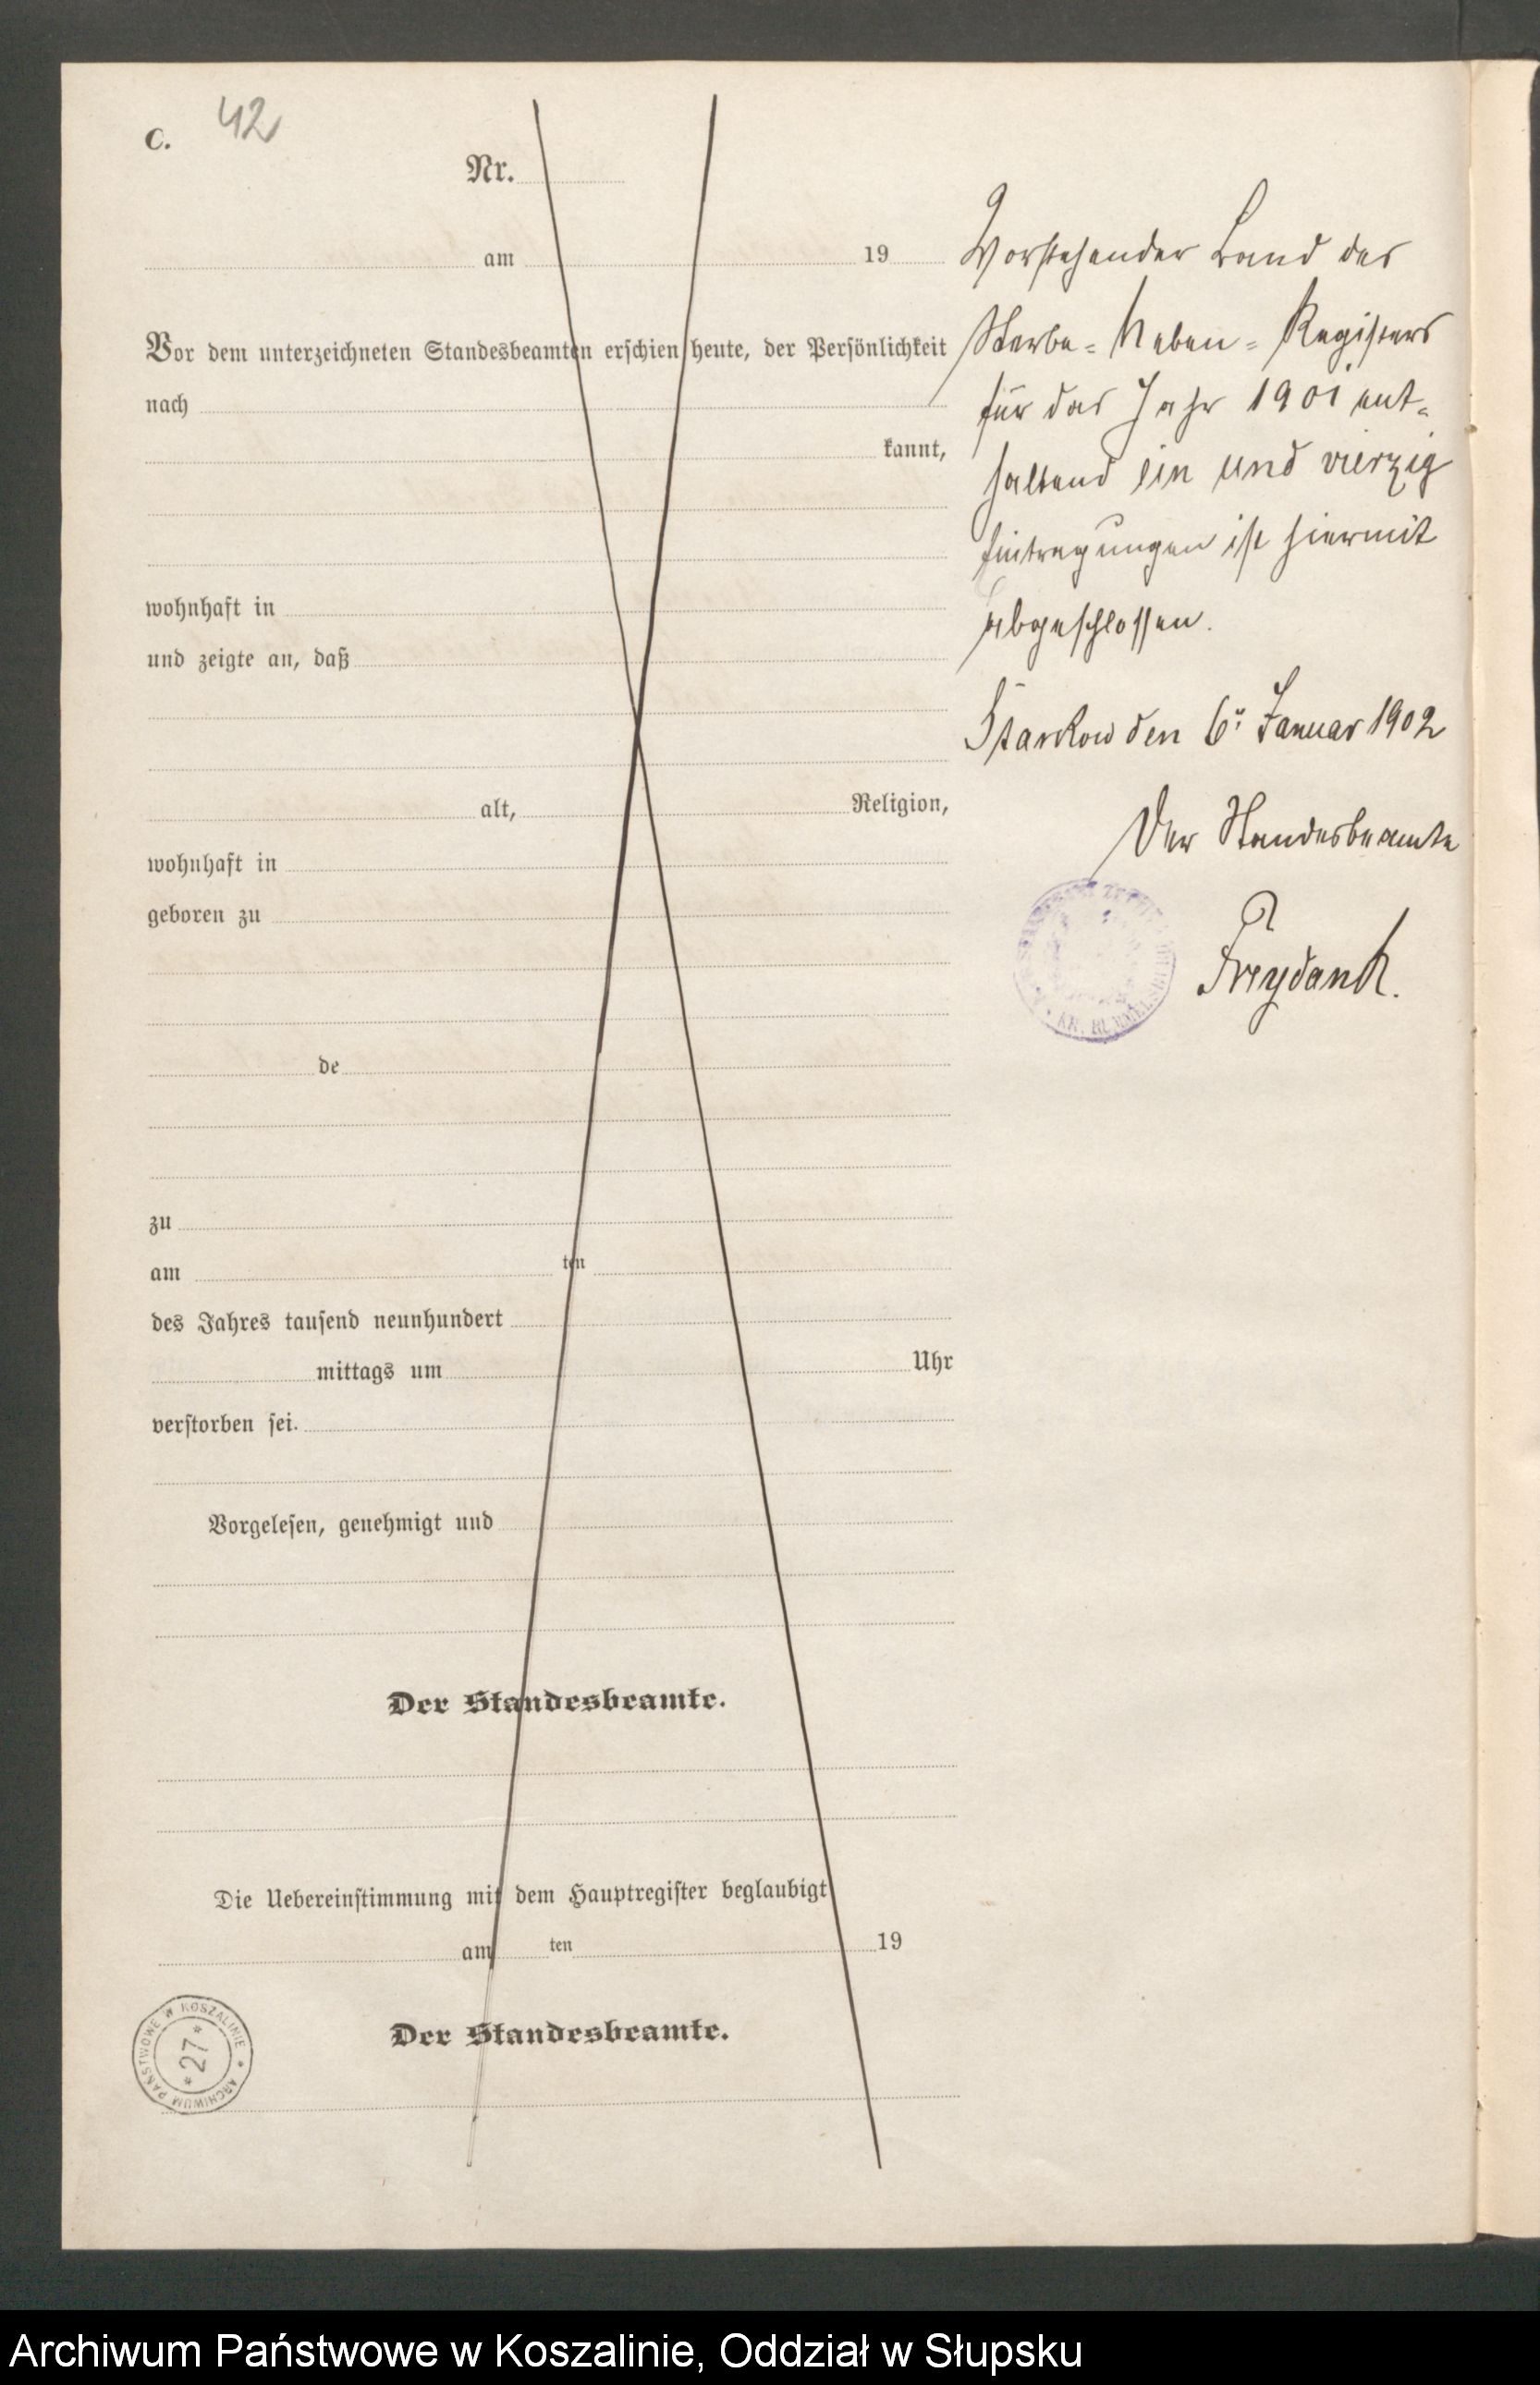 C. 42
Nr.
am 19
Vor dem unterzeichneten Standesbeamten erschien heute, der Persönlichkeit
nach
kannt,
wohnhaft in
und zeigte an, daß
alt, Religion,
wohnhaft in
geboren zu
de
zu
am ten
des Jahres tausend neunhundert
mittags um Uhr
verstorben sei.
Vorgelesen, genehmigt und
Der Standesbeamte.
Die Uebereinstimmung mit dem Hauptregister beglaubigt
am ten 19
Der Standesbeamte.
Vorstehender Band des
Sterbe= Neben= Registers
für das Jahr 1901 ent=
haltend ein und vierzig
Eintragungen ist hiermit
abgeschlossen.
Starkow den 6. Januar 1902
Der Standesbeamte
Freydank.
KR. RUMMELSBURG
ARCHIWUM PAŃSTWOWE W KOSZALINIE
* 27 *
Archiwum Państwowe w Koszalinie, Oddział w Słupsku